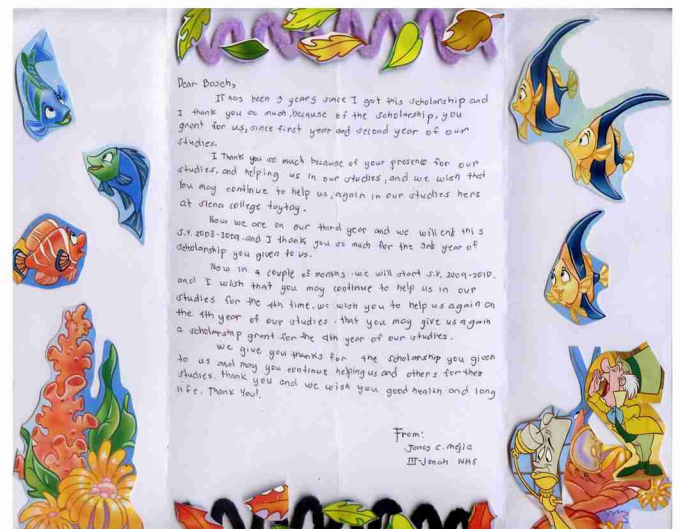 Dear Bosch,
It has been 3 years since I got this scholarship and
I thank you so much, because of the scholarship, you
grant for us, since first year and second year of our
studies.
I Thank you so much because of your presence for our
studies, and helping us in our studies, and we wish that
You may continue to help us, again in our studies here
at siena college taytay.
Now we are on our third year and we will end this
S.Y. 2008-2009. and I thank you so much for the 3rd year of
scholarship you given to us.
Now in a couple of months. we will start S.Y. 2009-2010.
and I wish that you may continue to help us in our
studies for the 4th time. we wish you to help us again on
the 4th year of our studies. that you may give us again
a scholarship grant for the 4th year of our studies.
we give you thanks for the scholarship you given
to us and may you continue helping us and others for their
studies. thank you and we wish you good health and long
life. Thank You!.
From:
Jonas C. Mejia
III-Jonah NHS